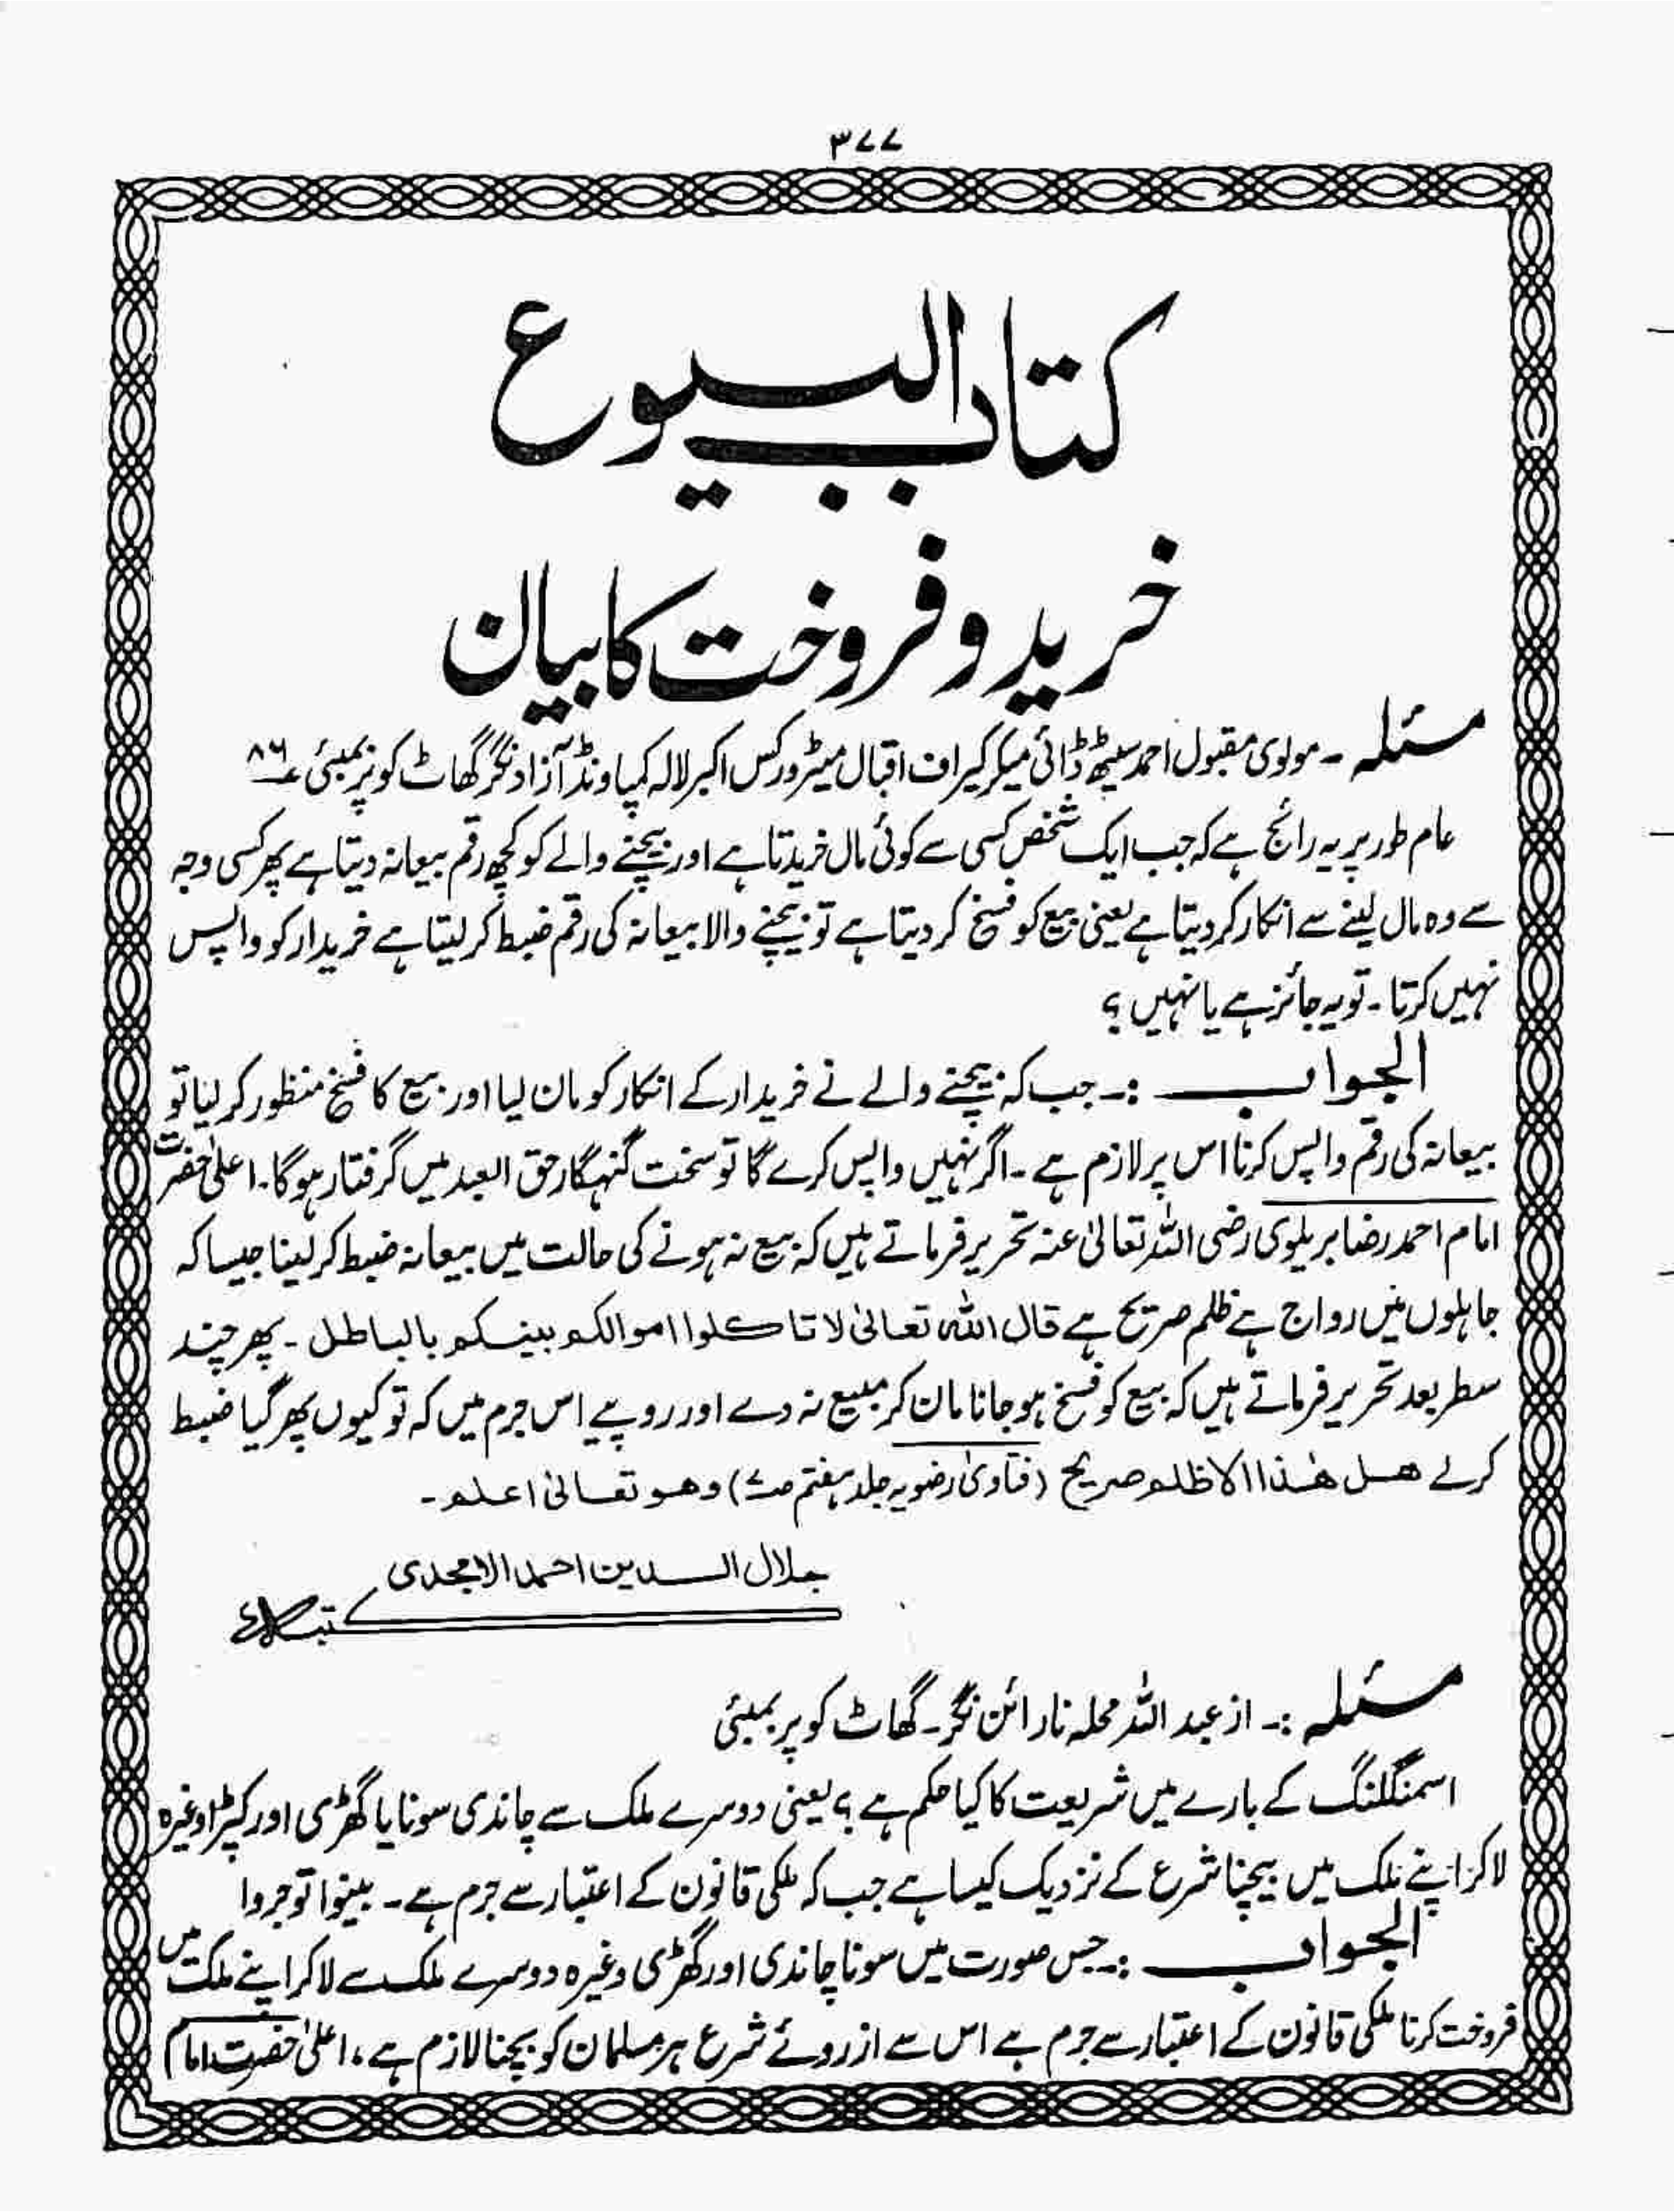 ۳۷۷
کتاب البیوع
خرید و فروخت کا بیان
مسئلہ ۔ مولوی مقبول احمد سیٹھ ڈائی میکر کیراف اقبال میٹر ورکس اکبر لالہ کمپاونڈ آزاد نگر گھاٹ کوپر بمبئی ۸۶
عام طور پر یہ رائج ہے کہ جب ایک شخص کسی سے کوئی مال خریدتا ہے اور بیچنے والے کو کچھ رقم بیعانہ دیتا ہے پھر کسی وجہ
سے وہ مال لینے سے انکار کر دیتا ہے یعنی بیع کو فسخ کر دیتا ہے تو بیچنے والا بیعانہ کی رقم ضبط کر لیتا ہے خریدار کو واپس
نہیں کرتا ۔ تو یہ جائز ہے یا نہیں ؟
الجواب :۔ جب کہ بیچنے والے نے خریدار کے انکار کو مان لیا اور بیع کا فسخ منظور کر لیا تو
بیعانہ کی رقم واپس کرنا اس پر لازم ہے ۔ اگر نہیں واپس کرے گا تو سخت گنہگار حق العبد میں گرفتار ہوگا ۔ اعلیٰ حضرت
امام احمد رضا بریلوی رضی اللہ تعالیٰ عنہ تحریر فرماتے ہیں کہ بیع نہ ہونے کی حالت میں بیعانہ ضبط کر لینا جیسا کہ
جاہلوں میں رواج ہے ظلم صریح ہے قال اللہ تعالیٰ لا تاکلوا اموالکم بینکم بالباطل ۔ پھر چند
سطر بعد تحریر فرماتے ہیں کہ بیع کو فسخ ہو جانا مان کر مبیع نہ دے اور روپیے اس جرم میں کہ تو کیوں پھر گیا ضبط
کرلے ھل ھٰذا الا ظلم صریح (فتاویٰ رضویہ جلد ہفتم ص۷) وھو تعالیٰ اعلم ۔
جلال الدین احمد الامجدی
کتبہ
مسئلہ :۔ از عبد اللہ محلہ نارائن نگر ۔ گھاٹ کوپر بمبئی
اسمنگلنگ کے بارے میں شریعت کا کیا حکم ہے ؟ یعنی دوسرے ملک سے چاندی سونا یا گھڑی اور کپڑا وغیرہ
لاکر اپنے ملک میں بیچنا شرع کے نزدیک کیسا ہے جب کہ ملکی قانون کے اعتبار سے جرم ہے ۔ بینوا توجروا
الجواب :۔ جس صورت میں سونا چاندی اور گھڑی وغیرہ دوسرے ملک سے لاکر اپنے ملک میں
فروخت کرنا ملکی قانون کے اعتبار سے جرم ہے اس سے از روئے شرع ہر مسلمان کو بچنا لازم ہے ، اعلیٰ حضرت امام